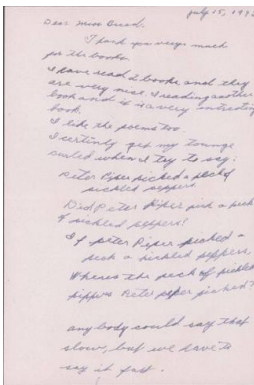 July 15, 19
Dear Miss Breed.
I thank you very much
for the books.
I have read 2 books and they
are very nice. I reading another
book and it is a very intresting
book.
I like the poems too.
I certinly get my tounge
curled when I try to say:
Peter Piper picked a peck of
pickled peppers
Did Peter Piper pick a peck
of pickled peppers?
If peter Piper picked a
peck a pickled peppers,
Wheres the peck of pickled
peppers Peter piper picked?
any body could say that
slow, but we have to
say it fast.